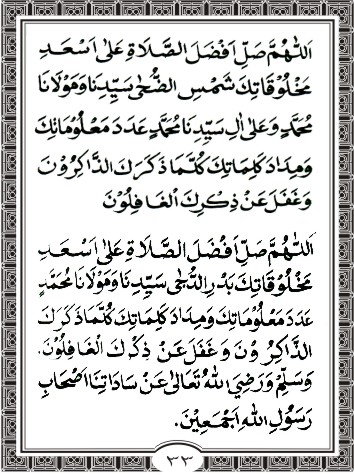 اَللّٰهُمَّ صَلِّ اَفْضَلَ الصَّلَاةِ عَلٰى اَسْعَدِ
مَخْلُوْقَاتِكَ شَمْسِ الضُّحٰى سَيِّدِنَا وَمَوْلَانَا
مُحَمَّدٍ وَعَلٰى اٰلِ سَيِّدِنَا مُحَمَّدٍ عَدَدَ مَعْلُوْمَاتِكَ
وَمِدَادَ كَلِمَاتِكَ كُلَّمَا ذَكَرَكَ الذَّاكِرُوْنَ
وَغَفَلَ عَنْ ذِكْرِكَ الْغَافِلُوْنَ
اَللّٰهُمَّ صَلِّ اَفْضَلَ الصَّلَاةِ عَلٰى اَسْعَدِ
مَخْلُوْقَاتِكَ بَدْرِ الدُّجٰى سَيِّدِنَا وَمَوْلَانَا مُحَمَّدٍ
عَدَدَ مَعْلُوْمَاتِكَ وَمِدَادَ كَلِمَاتِكَ كُلَّمَا ذَكَرَكَ
الذَّاكِرُوْنَ وَغَفَلَ عَنْ ذِكْرِكَ الْغَافِلُوْنَ.
وَسَلِّمْ وَرَضِيَ اللهُ تَعَالٰى عَنْ سَادَاتِنَا اَصْحَابِ
رَسُوْلِ اللهِ اَجْمَعِيْنَ.
٣٣